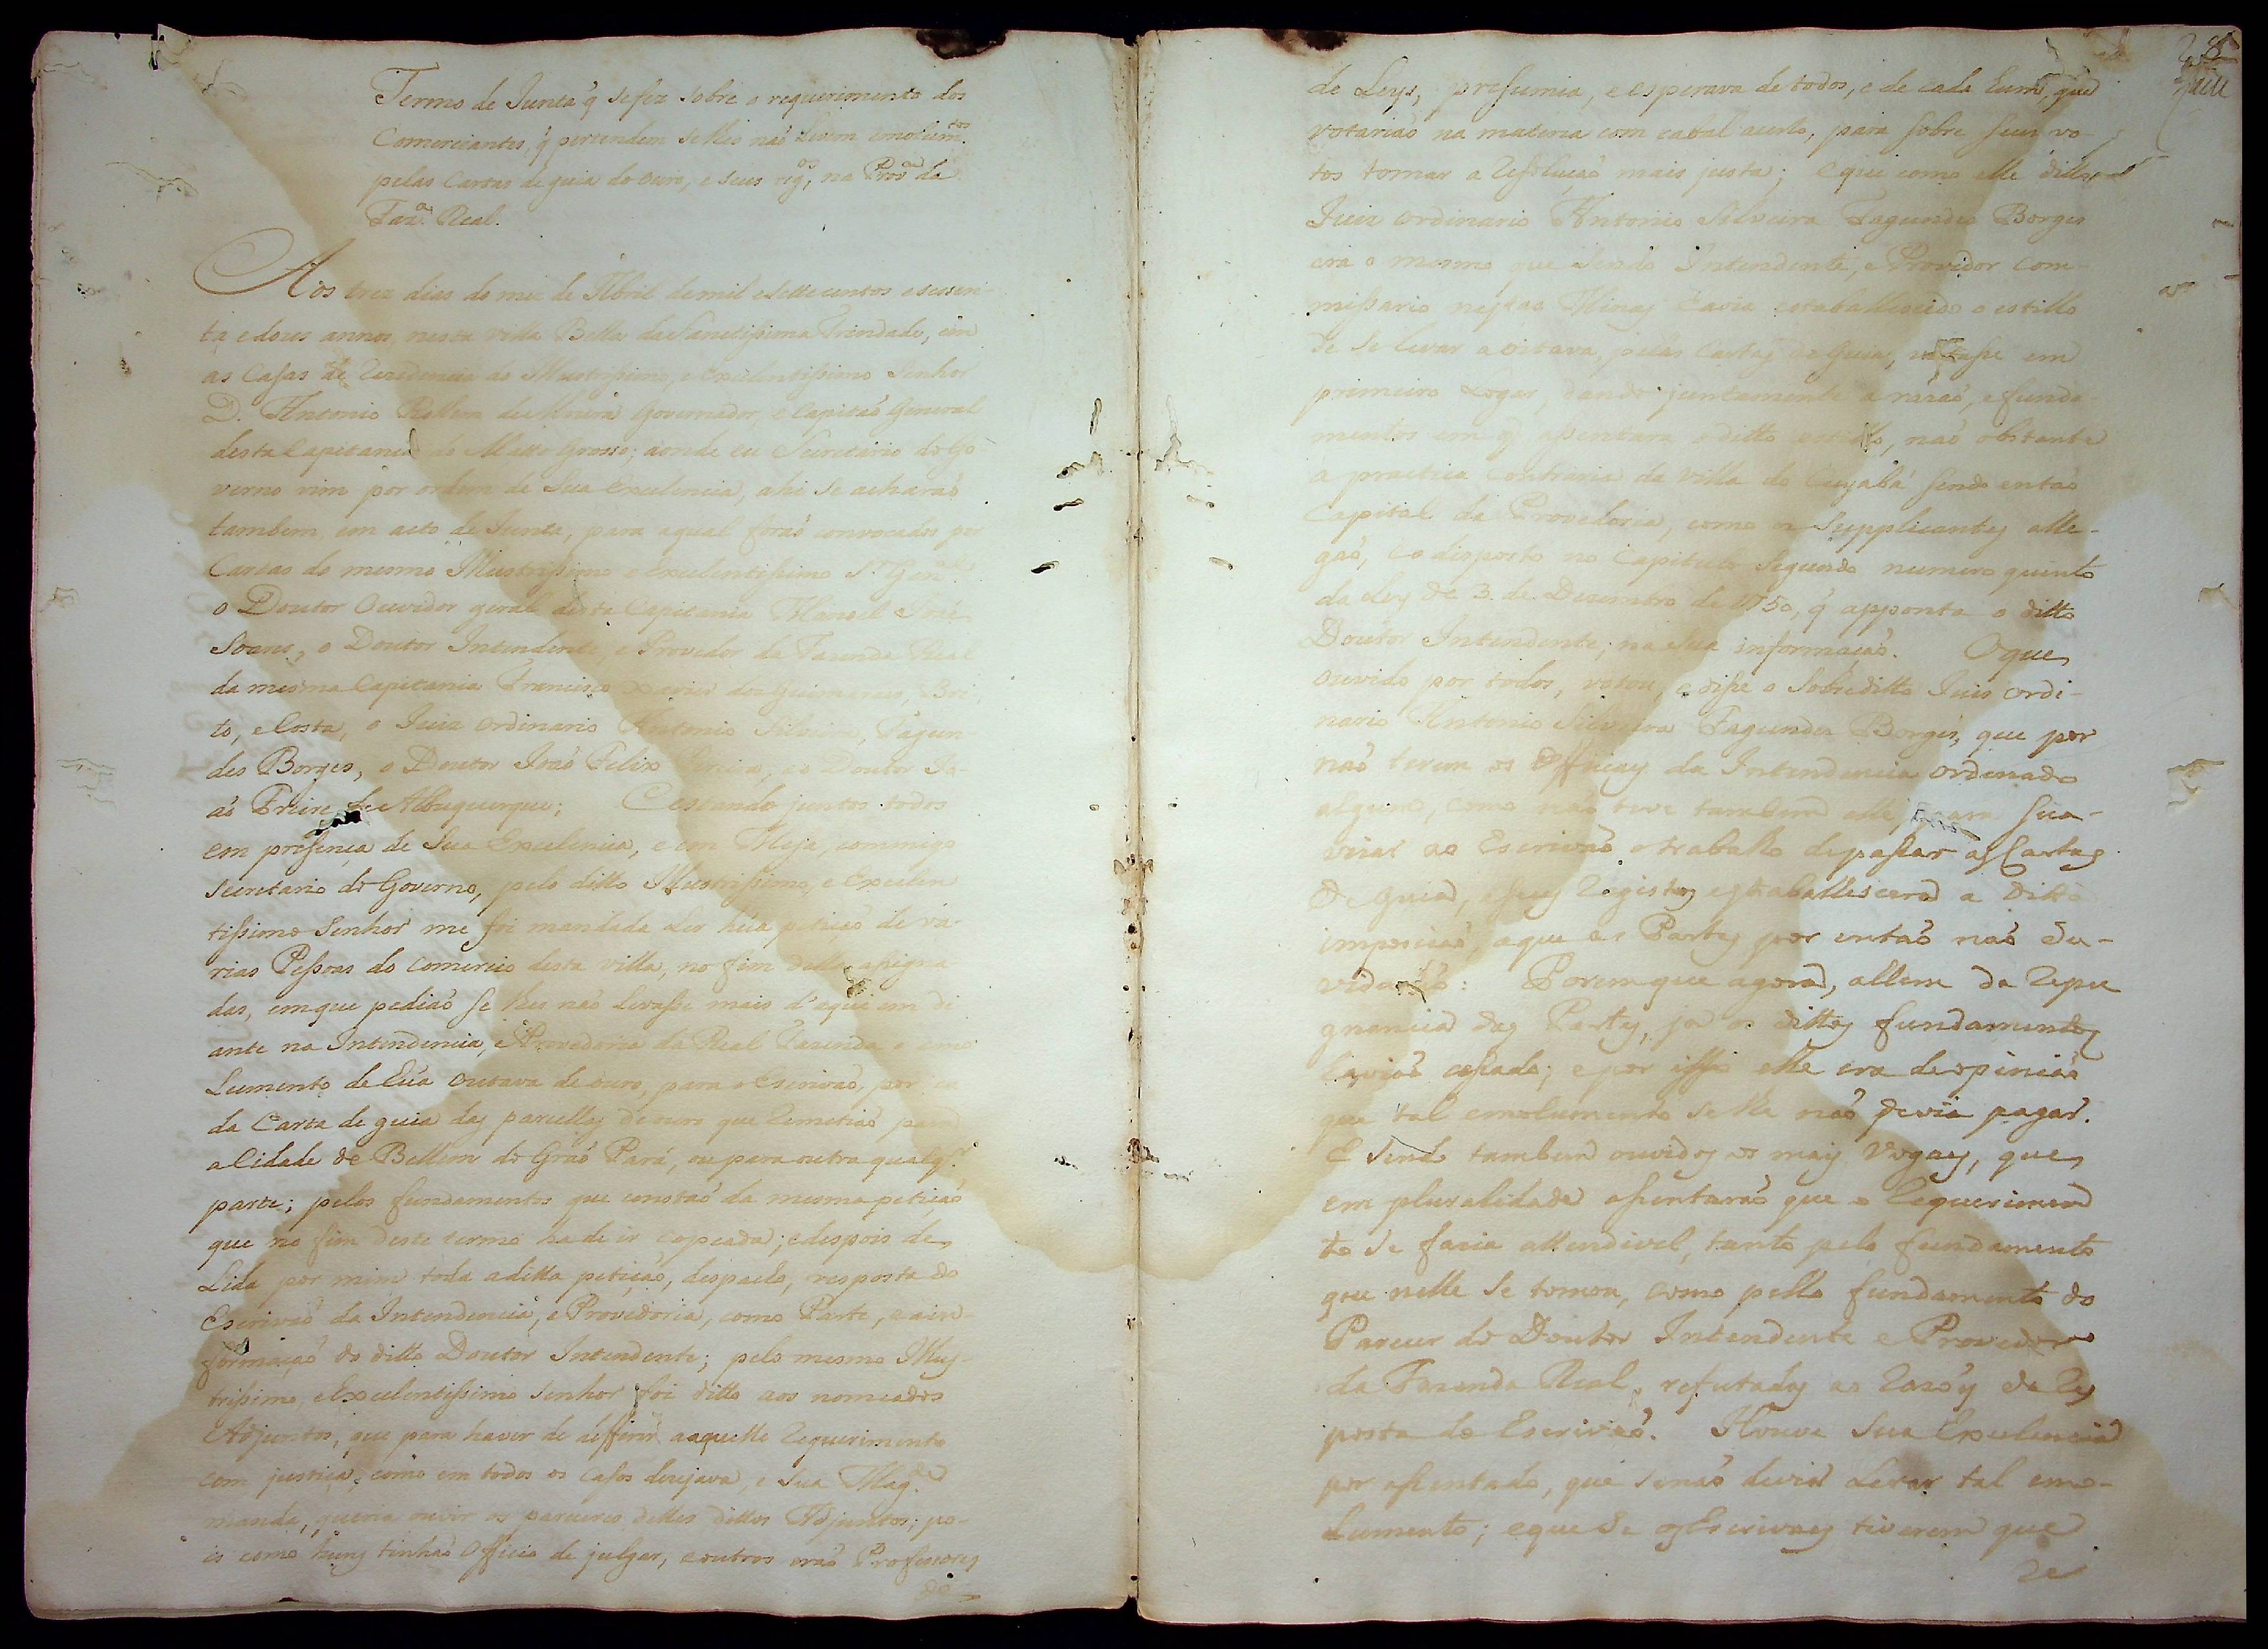 Termo de Junta q̃ se fez sobre o requerimento dos
Comerciantes, q̃ pertendem se lhes naõ Levem emolum.tos
pelas Cartas de guia do ouro, e seus reg.os, na Prov.a da
Faz.a Real.
Aos trez dias do mez de Abril de mil e Sette centos e sessen-
ta e dous annos, nesta villa Bella da Sanctissima Trindade, em
as Casas de Rezidencia do Illustrissimo, e Excelentissimo Senhor
D. Antonio Rollim de Moura Governador, e Capitaõ General
desta Capitania do Matto Grosso; aonde eu Secretario do Go-
verno vim por ordem de Sua Excelencia, ahi se acharaõ
tambem, em acto de Junta, para a qual foraõ convocados por
Cartas do mesmo Illustrissimo e Excelentissimo S.r Gen.al
o Doutor Ouvidor geral desta Capitania Manoel Jozé
Soares, o Doutor Intendente, e Provedor da Fazenda Real
da mesma Capitania Francisco Xavier dos Guimaraes, Bri-
to, e Costa, o Juiz ordinario Antonio Silveira, Fagun-
des Borges, o Doutor Joaõ Felix Pereira, e o Doutor Jo-
aõ Freire de Albuquerque; E estando juntos todos
em presença de Sua Excelencia, e em Mesa, commigo
Secretario do Governo, pelo ditto Illustrissimo, e Excelen
tissimo Senhor me foi mandada Ler hũa petiçaõ de va-
rias Pessoas do Comercio desta villa, no fim della asigna
das, em que pediaõ se lhes naõ Levasse mais d'aqui em di
ante na Intendencia, e Provedoria da Real Fazenda o emo
Lumento de hũa outava de ouro, para o Escrivaõ, por ca
da Carta de guia das parcellas de ouro que Remetiaõ para
a Cidade de Bellem do Graõ Pará, ou para outra qualq.r
parte; pelos fundamentos que constaõ da mesma petiçaõ
que no fim deste termo ha de ir copeada; e despois de
Lida por mim toda a ditta petiçaõ, despacho, resposta do
Escrivaõ da Intendencia, e Provedoria, como Parte, e a in-
formaçaõ do ditto Doutor Intendente; pelo mesmo Illus-
trissimo, e Excelentissimo Senhor foi ditto aos nomeados
Adjuntos, que para haver de differir aaquelle Requerimento
com justiça, como em todos os casos dezejava, e Sua Mag.de
manda, queria ouvir os pareceres delles dittos Adjuntos; po-
is como huns tinhaõ Officio de julgar, e outros eraõ Professores
de
de Leys, presumia, e esperava de todos, e de cada hum, que
votariaõ na materia com cabal acerto, para sobre seus vo-
tos tomar a Resoluçaõ mais justa; e que como elle ditto
Juiz ordinario Antonio Silveira Fagundes Borges
era o mesmo que sendo Intendente, e Provedor Com-
missario nestas Minas havia estabellescido o estillo
de se levar a oitava, pelas Cartas de Guia, votasse em
primeiro Logar, dando juntamente a razaõ, e funda-
mentos em q̃ assentara o ditto estillo, naõ obstante
a practica contraria da villa do Cuyabá sendo entaõ
Capital da Provedoria, como os Supplicantes alle-
gaõ, e o disposto no Capitulo Segundo numero quinto
da Ley de 3 de Dezembro de 1750, q̃ apponta o ditto
Doutor Intendente, na sua informaçaõ. O que
ouvido por todos, votou, e disse o Sobreditto Juis ordi-
nario Antonio Silveira Fagundes Borges, que por
naõ terem os Officiaes da Intendencia ordenado
algum, como naõ teve tambem elle, para sua-
vizar ao Escrivaõ o trabalho de passar as Cartas
de guia, e seus Registos estaballescera a Ditta
imposiçaõ, a que as Partes por entaõ naõ du-
vidaraõ: Porem que agora, allem da Repu
gnancia das Partes, ja os dittos fundamentos
haviaõ cessado; e por isso elle era de opiniaõ
que tal emolumento se lhe naõ devia pagar.
E sendo tambem ouvidos os mais Vogaes, que
em pluralidade assentaraõ que o Requerimen
to se fazia attendivel, tanto pelo fundamento
que nelle se tomou, como pello fundamento do
Parecer do Doutor Intendente e Provedor
da Fazenda Real, refutadas as Razões da Res
posta do Escrivaõ. Houve Sua Excelencia
por assentado, que se naõ devia Levar tal emo-
Lumento; e que se os Escrivaes tiverem que
Re